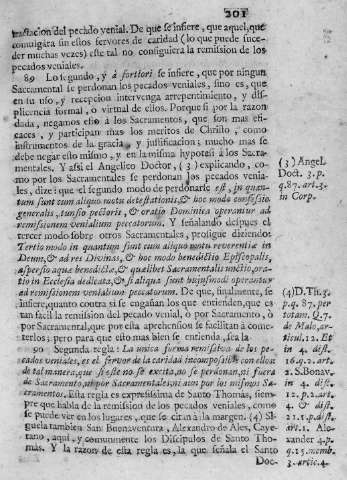 201
tractacion del pecado venial. De que se infiere, que aquel, que
comulgára sin estos fervores de caridad (lo que puede suce-
der muchas vezes) este tal no conseguiera la remission de los
pecados veniales.
89 Lo segundo, y à fortiori se infiere, que por ningun
Sacramental se perdonan los pecados veniales, sino es, que
en su uso, y recepcion intervenga arrepentimiento, y dis-
plicencia formal, ò virtual de ellos. Porque si por la razon
dada, negamos esto à los Sacramentos, que son mas efi-
caces, y participan mas los meritos de Christo, como
instrumentos de la gracia, y justificacion; mucho mas se
debe negar esto mismo, y en la misma hypotesi à los Sacra-
mentales. Y assi el Angelico Doctor, (3) explicando, co-
mo por los Sacramentales se perdonan los pecados venia-
les, dize: que el segundo modo de perdonarse est, in quan-
tum sunt cum aliquo motu detestationis, & hoc modo confessio
generalis, tunsio pectoris, & oratio Dominica operantur ad
remissionem venialium peccatorum. Y señalando despues el
tercer modo sobre otros Sacramentales, prosigue diziendo:
Tertio modo in quantum sunt cum aliquo motu reverentiæ in
Deum, & ad res Divinas, & hoc modo benedictio Episcopalis,
aspersio aquæ benedictæ, & quælibet Sacramentalis unctio, ora-
tio in Ecclesia dedicata, & si aliqua sunt huiusmodi operantur
ad remissionem venialium peccatorum. De que, finalmente, se
infiere, quanto contra sì se engañan los que entienden, que es
tan facil la remission del pecado venial, ò por Sacramento, ò
por Sacramental, que por esta aprehension se facilitan à come-
terlos; pero para que esto mas bien se entienda, sea la
90 Segunda regla: La unica forma remissiva de los pe-
cados veniales, es el fervor de la caridad incompossible con ellos
de tal manera, que si este no se excita, no se perdonan, ni fuera
de Sacramento, ni por Sacramentales; ni aun por los mismos Sa-
cramentos. Esta regla es expressissima de Santo Thomàs, siem-
pre que habla de la remission de los pecados veniales, como
se puede vèr en los lugares, que se citan à la margen. (4) Si-
guela tambien San Buenaventura, Alexandro de Ales, Caye-
tano, aqui, y comunmente los Discipulos de Santo Tho-
màs. Y la razon de esta regla es, la que señala el Santo
Doc-
(3) Angel.
Doct. 3. p.
q. 87. art. 3.
in Corp.
(4) D. Th. 3.
p. q. 87. per
totam. Q. 7.
de Malo, ar-
ticul. 12. Et
in 4. dist.
16. q. 2. art.
2. S. Bonav.
in 4. dist.
12. p. 2. art.
4. & dist.
21. 1. p. dist.
art. 1. Ale-
xander 4. p.
q. 15. memb.
3. artic. 4.